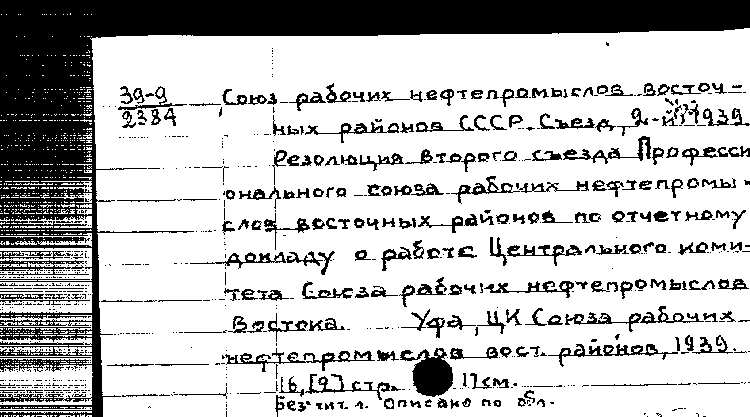 39-9
2384
Союз рабочих нефтепромыслов восточ-
ных районов СССР. Съезд, 2-й. 1939
Резолюция второго съезда Професси
онального союза рабочих нефтепромы-
слов восточных районов по отчетному
докладу о работе Центрального коми-
тета Союза рабочих нефтепромыслов
Востока. Уфа, ЦК Союза рабочих
нефтепромыслов вост. районов, 1939.
16, [2] стр. 17 см.
Без тит. л. Описано по обл.